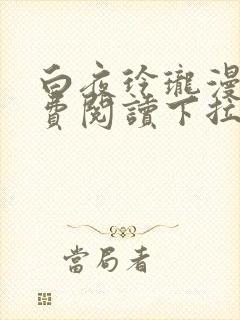 白夜玲瓏漫
費閱讀下拉
當局者